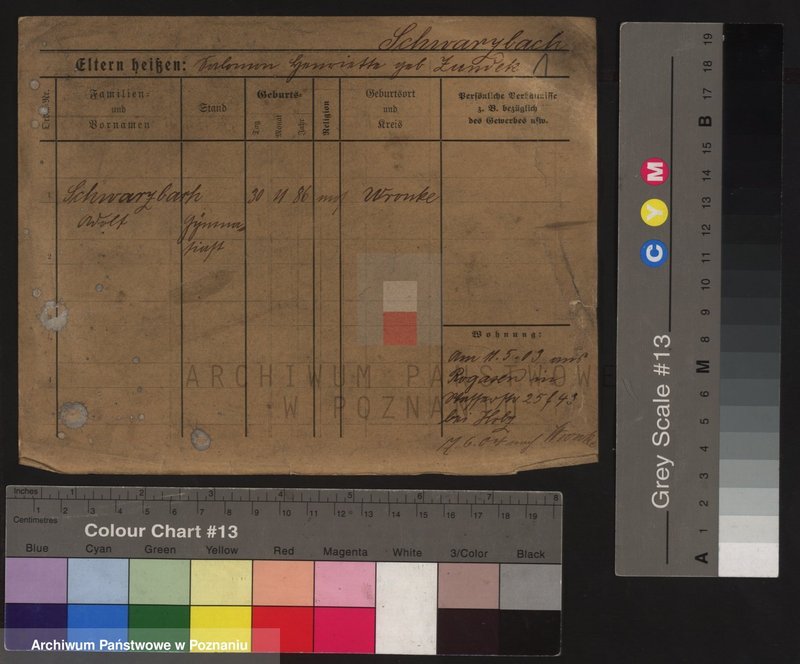 Schwarzbach
Eltern heißen: Salomon Henriette geb Zundek
Lfde. Nr.
Familien- und Vornamen
Stand
Geburts-
Tag
Monat
Jahr
Religion
Geburtsort und Kreis
Persönliche Verhältnisse z. B. bezüglich des Gewerbes usw.
Schwarzbach 30 11 86 mos Wronke
Adolf Gymna-
siast
Wohnung:
Am 11.5.03 aus
Rogasen
25
bei Holz
6.04 nach Wronke
ARCHIWUM PAŃSTWOWE
W POZNA
Inches 1 2 3 4 5 6 7 8
Centimetres 1 2 3 4 5 6 7 8 9 10 11 12 13 14 15 16 17 18 19
Colour Chart #13
Blue Cyan Green Yellow Red Magenta White 3/Color Black
Archiwum Państwowe w Poznaniu
Grey Scale #13
C Y M
A 1 2 3 4 5 6 M 8 9 10 11 12 13 14 15 B 17 18 19